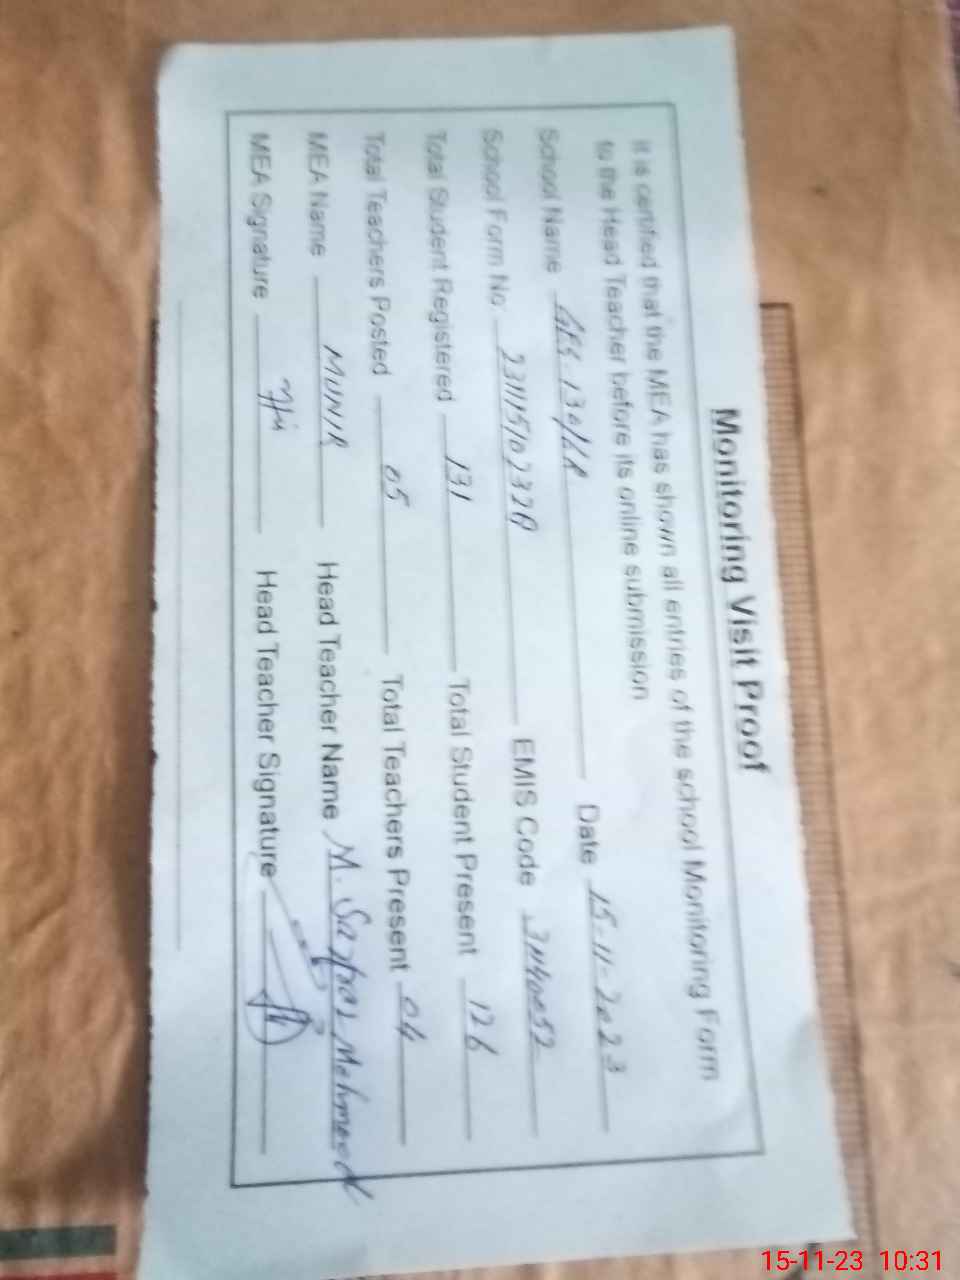 Monitoring Visit Proof
It is certified that the MEA has shown all entries of the school Monitoring Form
to the Head Teacher before its online submission
School Name Date 15-11-2023
School Form No. EMIS Code 31140052
Total Student Registered 131 Total Student Present 126
Total Teachers Posted 05 Total Teachers Present 04
MEA Name MUNIR Head Teacher Name M. Sarfraz Mehmood
MEA Signature Head Teacher Signature
15-11-23 10:31